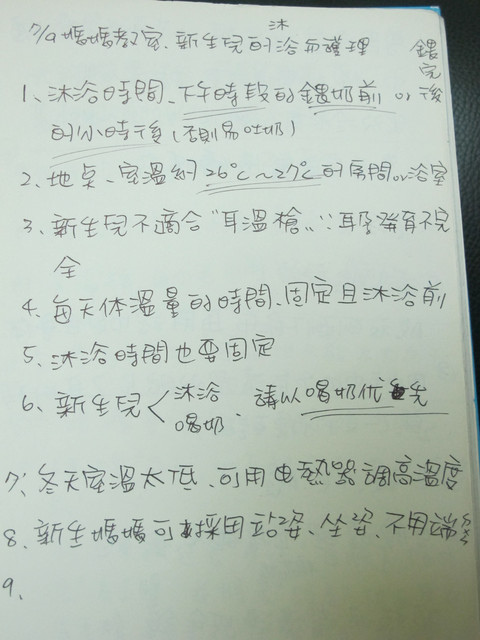 7/9 媽媽教室、新生兒的沐浴與護理
1、沐浴時間、下午時段的餵奶前 or 餵完後
的1小時後 (否則易吐奶)
2、地點、室溫約 26°C～27°C 的房間or浴室
3、新生兒不適合"耳溫槍"∵耳發育不完
全
4、每天体溫量的時間、固定且沐浴前
5、沐浴時間也要固定
6、新生兒＜沐浴 喝奶、請以喝奶优先
7、冬天室溫太低、可用电熱器調高溫度
8、新生媽媽可採用站姿、坐姿、不用端
9、